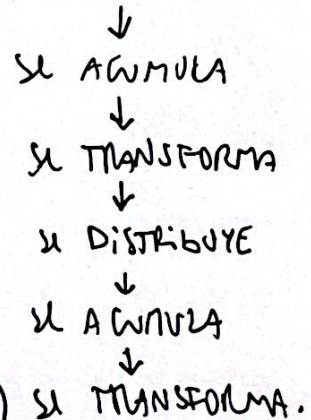 ↓
se ACUMULA
↓
se TRANSFORMA
↓
se DiSTRibUYE
↓
se ACUMULA
↓
) se TRANSFORMA.